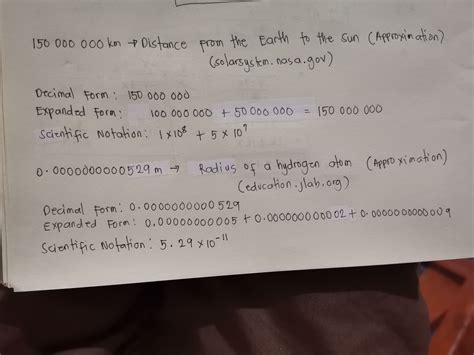 150 000 000 km → Distance from the Earth to the sun (Approximation)
(solarsystem.nasa.gov)
Decimal Form: 150 000 000
Expanded Form: 100 000 000 + 50 000 000 = 150 000 000
Scientific Notation: 1×10⁸ + 5×10⁷
0.0000000000529 m → Radius of a hydrogen atom (Approximation)
(education.jlab.org)
Decimal Form: 0.0000000000529
Expanded Form: 0.00000000005 + 0.000000000002 + 0.0000000000009
Scientific Notation: 5.29×10⁻¹¹